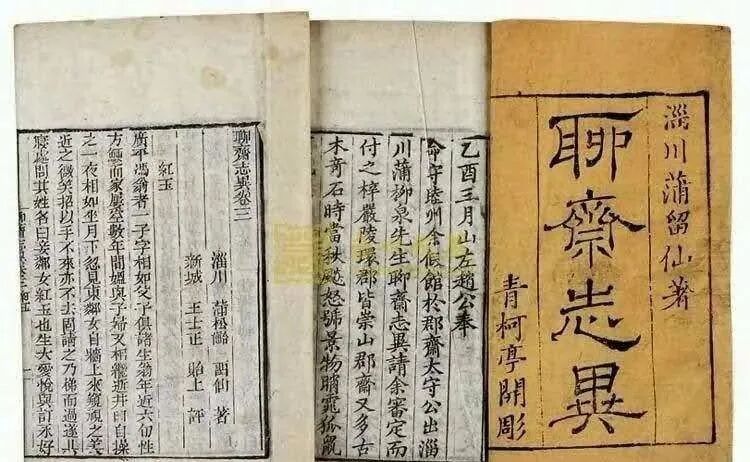 淄川蒲留仙著
聊齋志異
青柯亭開彫
乙酉三月山左趙公奉
命守睦州余假館於郡齋太守公出淄
川蒲柳泉先生聊齋志異請余審定而
付之梓嚴陵環郡皆崇山郡齋又多古
木奇石時當秋飈怒號景物睄窕狐鼠
聊齋志異卷三
淄川 蒲松齡 畱仙 著
新城 王士正 貽上 評
紅玉
廣平馮翁者一子字相如父子俱諸生翁年近六旬性
方鯁而家屢空數年間媼與子婦又相繼逝井臼自操
之一夜相如坐月下忽見東鄰女自牆上來窺視之美
近之微笑招以手不來亦不去固請之乃梯而過遂共
寢處問其姓名曰妾鄰女紅玉也生大愛悅與訂永好